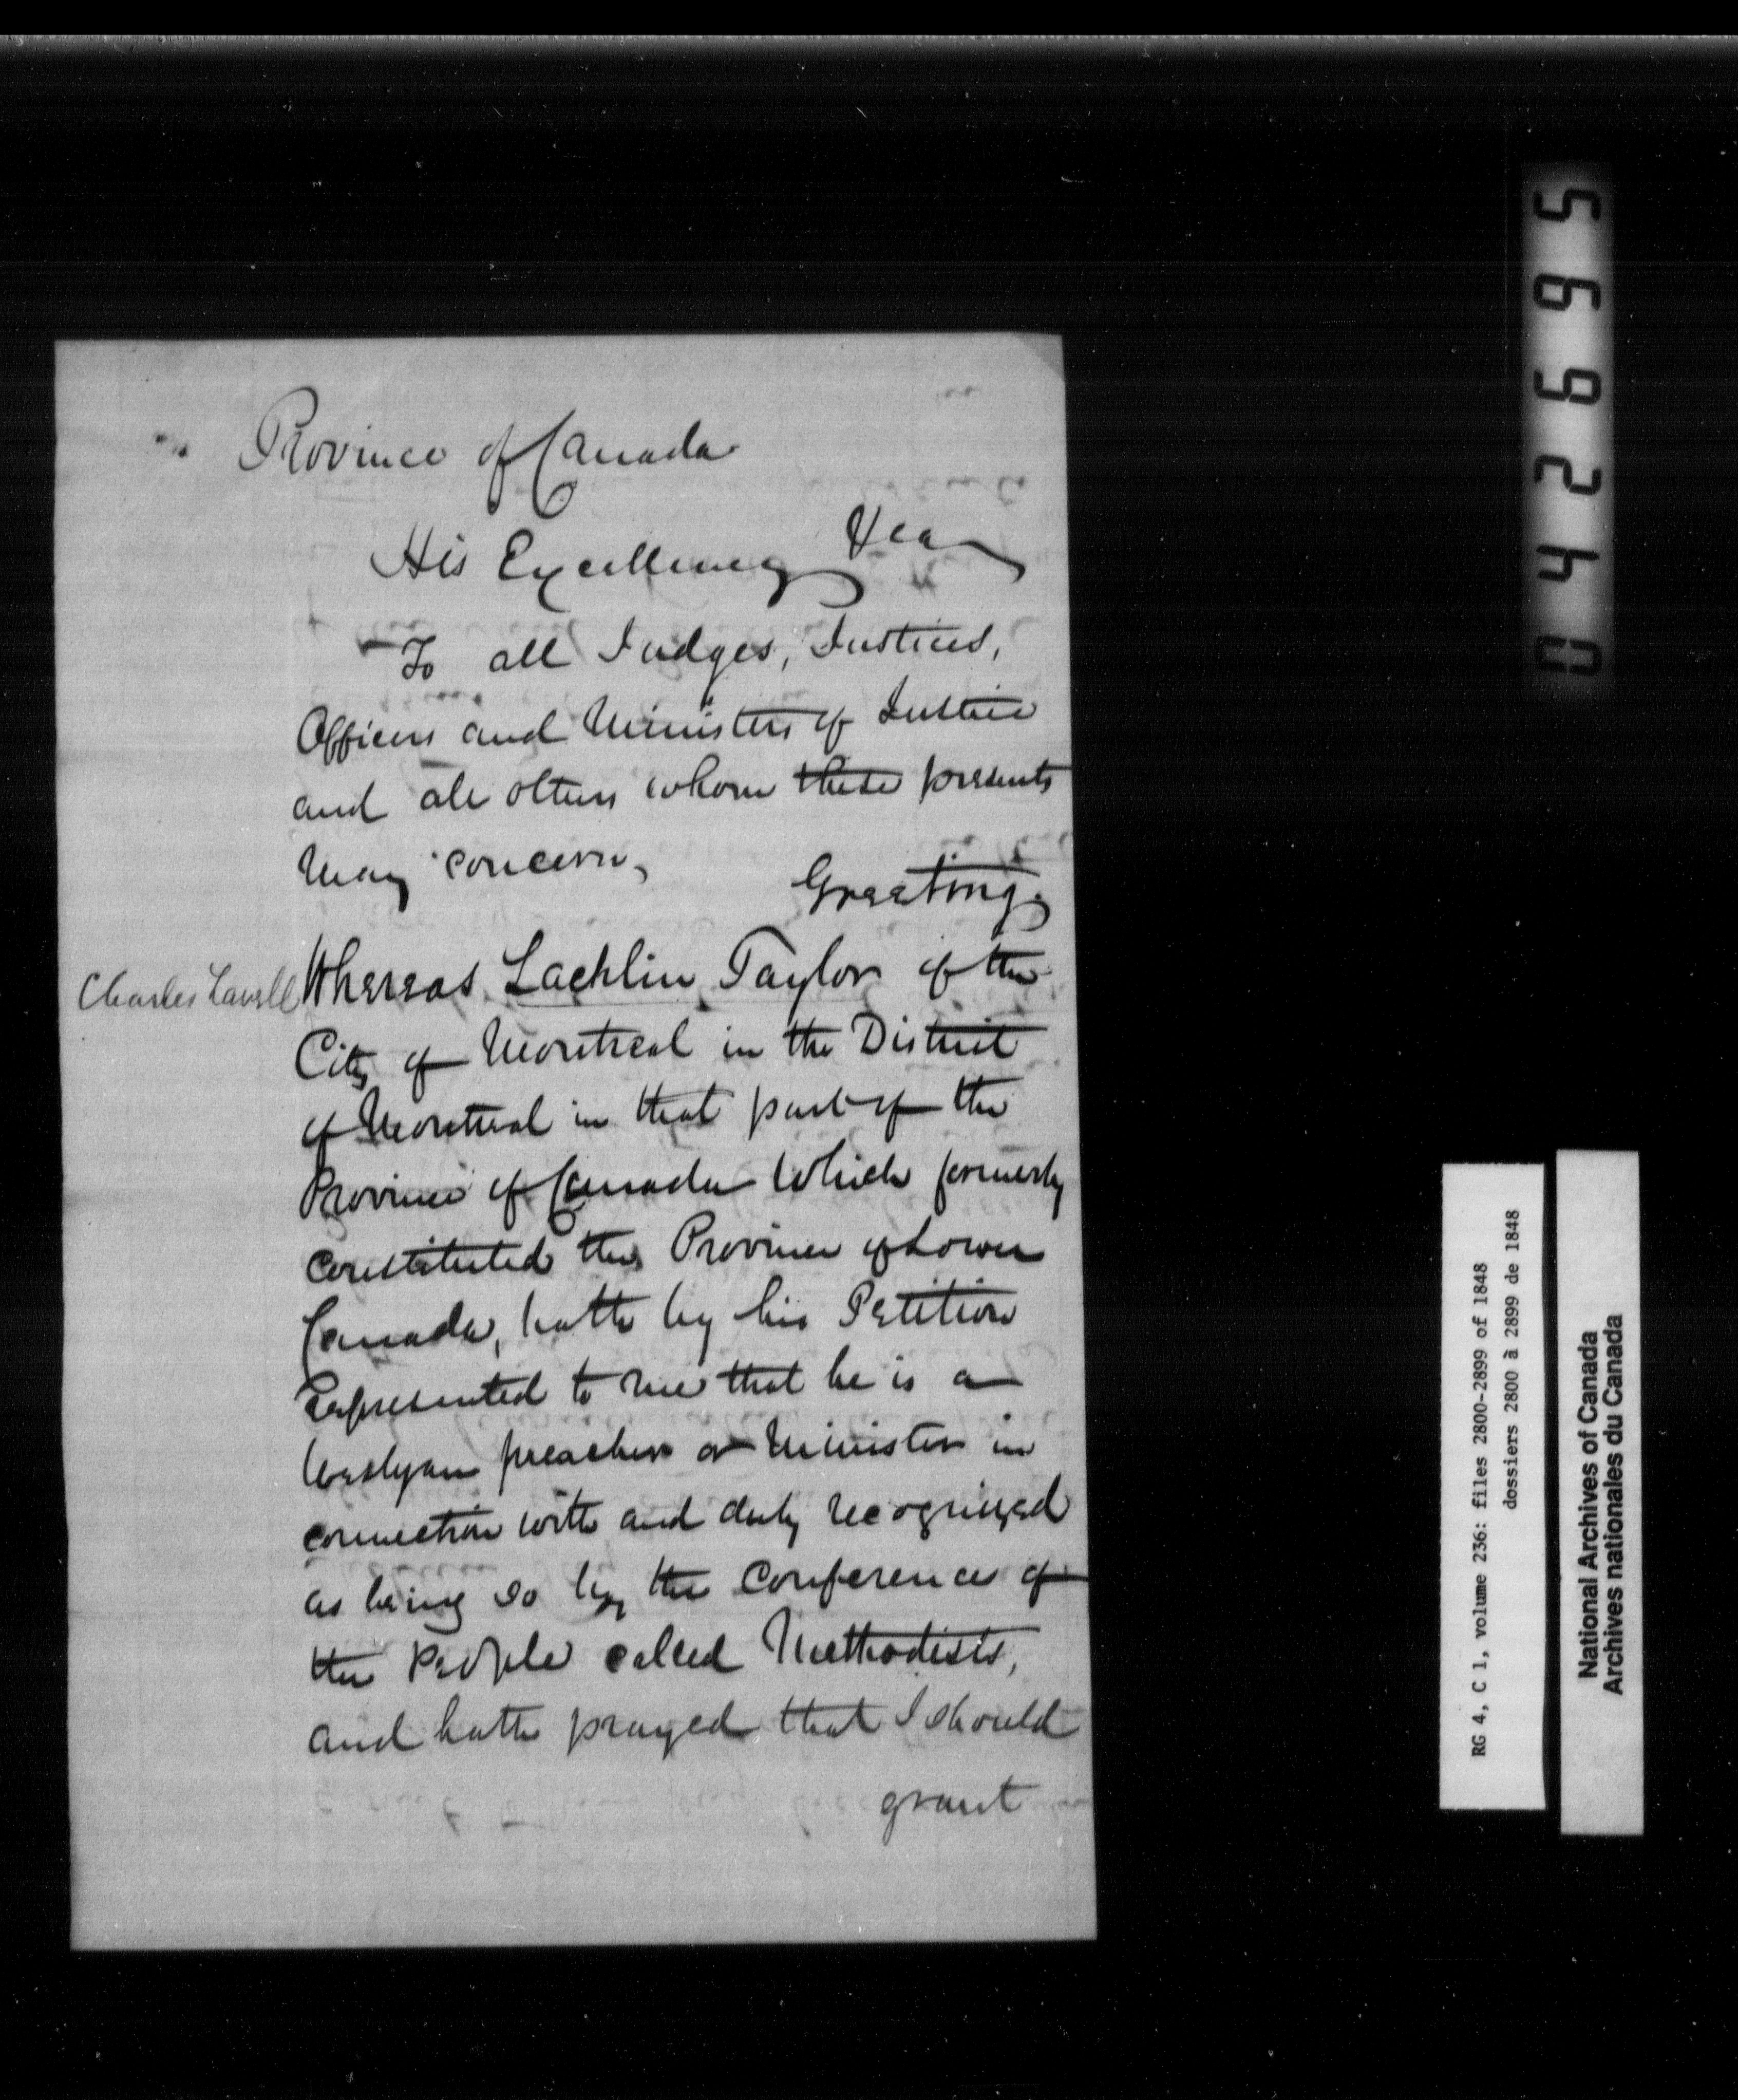 Province of Canada
His Excellency
To all Judges, Justices,
Officers and Ministers of Justice
and all others whom these presents
may concern,
Greeting.
Charles Lavell
Whereas Lachlin Taylor of the
City of Montreal in the District
of Montreal in that part of the
Province of Canada which formerly
constituted the Province of Lower
Canada, hath by his Petition
represented to me that he is a
Weslyan preacher or Minister in
connection with and duly recognized
as being so by the Conference of
the People called Methodists,
and hath prayed that I should
grant
042695
RG 4, C 1, volume 236: files 2800-2899 of 1848
dossiers 2800 à 2899 de 1848
National Archives of Canada
Archives nationales du Canada